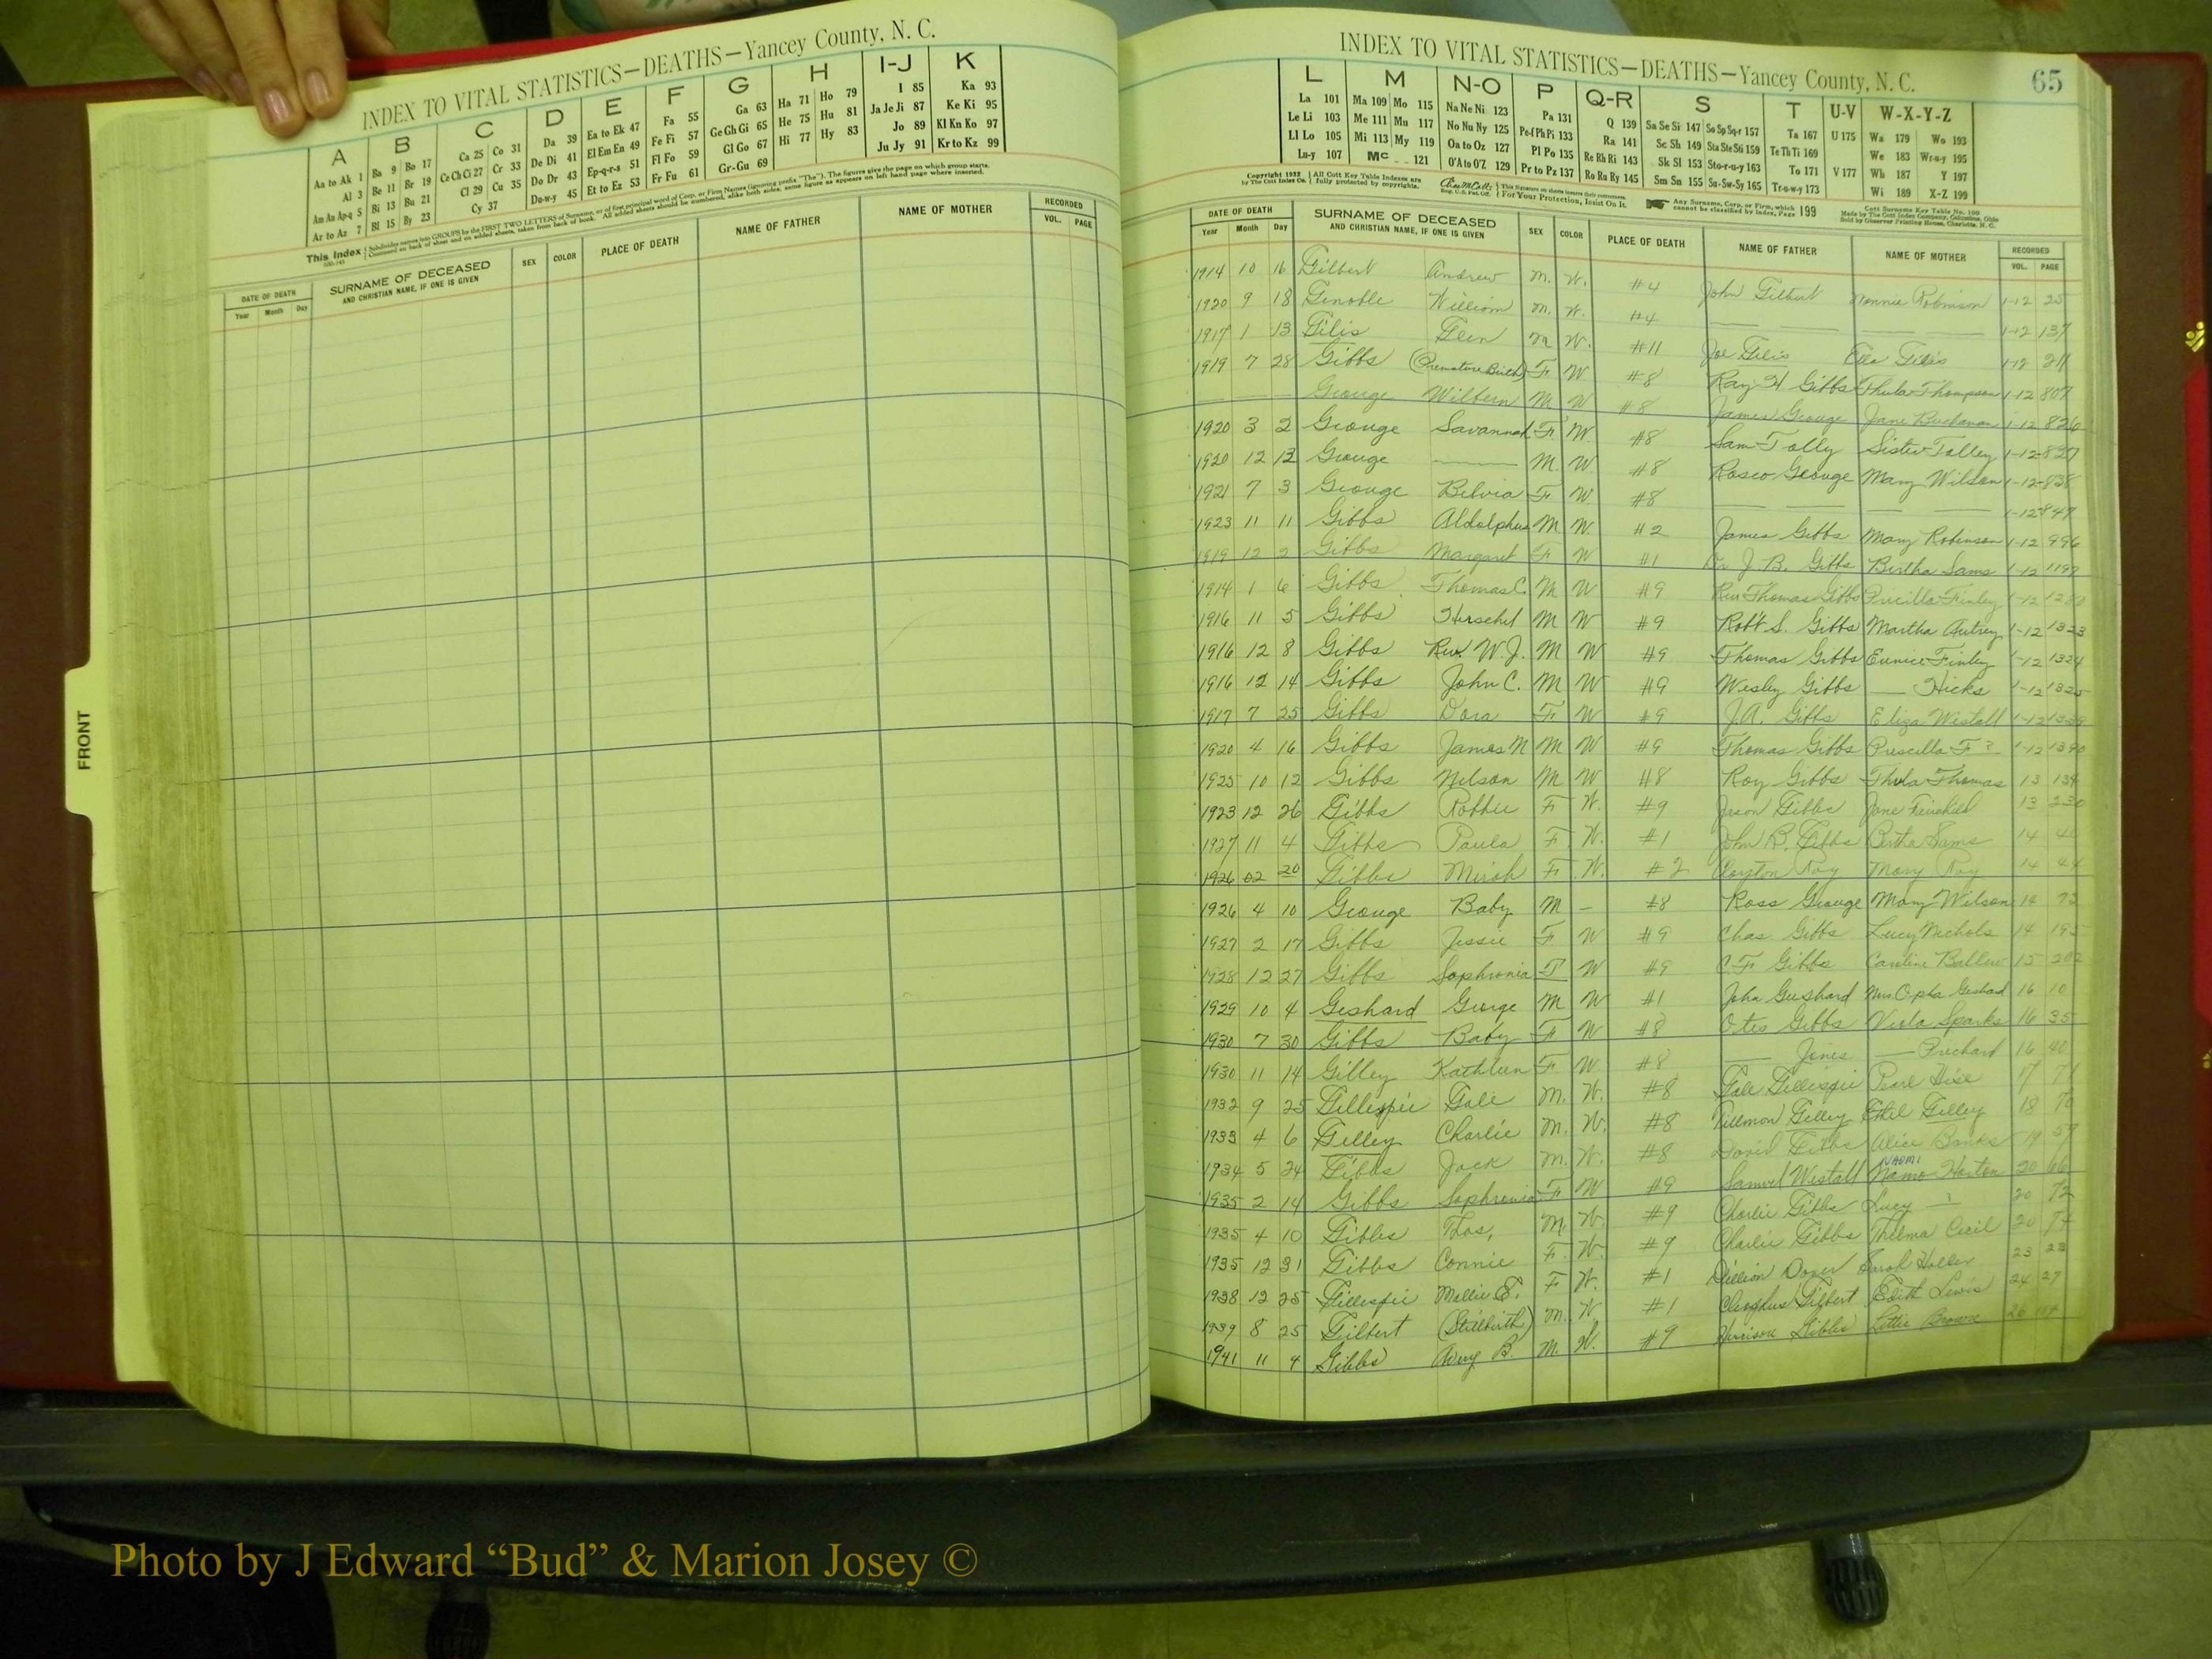 INDEX TO VITAL STATISTICS—DEATHS—Yancey County, N. C.
A B C D E F G H I-J K
Aa to Ak 1 Ba 9 Bo 17 Ca 25 Co 31 Da 39 Ea to Ek 47 Fa 55 Ga 63 Ha 71 Ho 79 I 85 Ka 93
Al 3 Be 11 Br 19 Ce Ch Ci 27 Cr 33 De Di 41 El Em En 49 Fe Fi 57 Ge Gh Gi 65 He 75 Hu 81 Ja Je Ji 87 Ke Ki 95
Am An Ap-q 5 Bi 13 Bu 21 Cl 29 Cu 35 Do Dr 43 Ep-q-r-s 51 Fl Fo 59 Gl Go 67 Hi 77 Hy 83 Jo 89 Kl Kn Ko 97
Ar to Az 7 Bl 15 By 23 Cy 37 Du-w-y 45 Et to Ez 53 Fr Fu 61 Gr-Gu 69 Ju Jy 91 Kr to Kz 99
This Index Subdivides names into GROUPS by the FIRST TWO LETTERS of Surname, or of first principal word of Corp. or Firm Names (ignoring prefix "The"). The figures give the page on which group starts.
Continued on back of sheet and on added sheets, taken from back of book. All added sheets should be numbered, alike both sides, same figure as appears on left hand page where inserted.
DATE OF DEATH SURNAME OF DECEASED SEX COLOR PLACE OF DEATH NAME OF FATHER NAME OF MOTHER RECORDED
Year Month Day AND CHRISTIAN NAME, IF ONE IS GIVEN VOL. PAGE
FRONT
INDEX TO VITAL STATISTICS—DEATHS—Yancey County, N. C. 65
L M N-O P Q-R S T U-V W-X-Y-Z
La 101 Ma 109 Mo 115 Na Ne Ni 123 Pa 131 Q 139 Sa Se Si 147 So Sp Sq-r 157 Ta 167 U 175 Wa 179 Wo 193
Le Li 103 Me 111 Mu 117 No Nu Ny 125 Pe-f Ph Pi 133 Ra 141 Sc Sh 149 Sta Ste Sti 159 Te Th Ti 169 We 183 Wr-u-y 195
Ll Lo 105 Mi 113 My 119 Oa to Oz 127 Pl Po 135 Re Rh Ri 143 Sk Sl 153 Sto-r-u-y 163 To 171 V 177 Wh 187 Y 197
Lu-y 107 Mc 121 O'A to O'Z 129 Pr to Pz 137 Ro Ru Ry 145 Sm Sn 155 Su-Sw-Sy 165 Tr-u-w-y 173 Wi 189 X-Z 199
Copyright 1932 by The Cott Index Co. All Cott Key Table Indexes are fully protected by copyrights. For Your Protection, Insist On It. Any Surname, Corp. or Firm, which cannot be classified by Index, Page 199
Cott Surname Key Table No. 100
Made by The Cott Index Company, Columbus, Ohio
Sold by Observer Printing House, Charlotte, N. C.
DATE OF DEATH SURNAME OF DECEASED SEX COLOR PLACE OF DEATH NAME OF FATHER NAME OF MOTHER RECORDED
Year Month Day AND CHRISTIAN NAME, IF ONE IS GIVEN VOL. PAGE
1914 10 16 Gilbert Andrew M. W. #4 John Gilbert Robinson 1-12 25
1920 9 18 William M. W. #4 1-12 137
1917 1 13 Glen M W. #11 Joe 1-12 211
1919 7 28 Gibbs (Premature Birth) F W #8 Ray H Gibbs Thula Thompson 1-12 807
George Wilburn M W #8 James George Jane Buchanan 1-12 826
1920 3 2 George Savannah F W #8 Sam Tolley Sister Tolley 1-12 827
1920 12 12 George M. W #8 Rosco George Mary Wilson 1-12 838
1921 7 3 George F W #8 1-12 847
1923 11 11 Gibbs Aldolphus M W. #2 James Gibbs Mary Robinson 1-12 996
1919 12 2 Gibbs Margaret F W #1 Dr J. B. Gibbs Bertha Sams 1-12 1197
1914 1 6 Gibbs Thomas C. M W #9 Rev Thomas Gibbs Pricilla Finley 1-12
1916 11 5 Gibbs Herschel M W #9 Robt S. Gibbs Martha Autrey 1-12 1323
1916 12 8 Gibbs Rev. W. J. M W #9 Thomas Gibbs Eunice Finley 1-12 1324
1916 12 14 Gibbs John C. M W #9 Wesley Gibbs Hicks 1-12 1325
1917 7 25 Gibbs Dora F W #9 J. A. Gibbs Eliza Westall 1-12
1920 4 16 Gibbs James N M W #9 Thomas Gibbs Priscilla F ? 1-12 1390
1925 10 12 Gibbs Nelson M W #8 Roy Gibbs Thula Thomas 13 134
1923 12 26 Gibbs Robbie F W. #9 Jason Gibbs Jane 13 230
1927 11 4 Gibbs Paula F W. #1 John B. Gibbs Bertha Sams 14
1926 02 20 Gibbs F W. #2 Ray Mary Ray 14 44
1926 4 10 George Baby M – #8 Ross George Mary Wilson 14 72
1927 2 17 Gibbs Jessie F W #9 Chas. Gibbs Lucy Nichols 14 195
1928 12 27 Gibbs Sophronia F W #9 C. F. Gibbs Caroline Ballew 15 202
1929 10 4 Geshard George M W #1 John Geshard Mrs Opha Geshard 16 10
1930 7 30 Gibbs Baby F W #8 Otis Gibbs Viola Sparks 16 35
1930 11 14 Gilley Kathleen F W #8 Jones Prichard 16 40
1932 9 25 Gillespie Gale M. W. #8 Gale Gillespie Pearl Hise 17 71
1933 4 6 Gilley Charlie M. W. #8 Tillmon Gilley Ethel Gilley 18 70
1934 5 24 Gibbs Jack M. W. #8 David Gibbs Alice Banks 19 59
1935 2 14 Gibbs Sophronia F W #9 Samuel Westall NAOMI Horton 20 66
1935 4 10 Gibbs Thos. M. W. #9 Charlie Gibbs Lucy ? 20 72
1935 12 31 Gibbs Connie F. W. #9 Charlie Gibbs Thelma Cecil 20 74
1938 12 25 Gillespie Mollie E. F W. #1 Sarah 23 23
1939 8 25 Gilbert (Stillbirth) M. W #1 Gilbert Edith Lewis 24 27
1941 11 4 Gibbs Avery B. M. W. #9 Gibbs Lottie Brown
Photo by J Edward “Bud” & Marion Josey ©